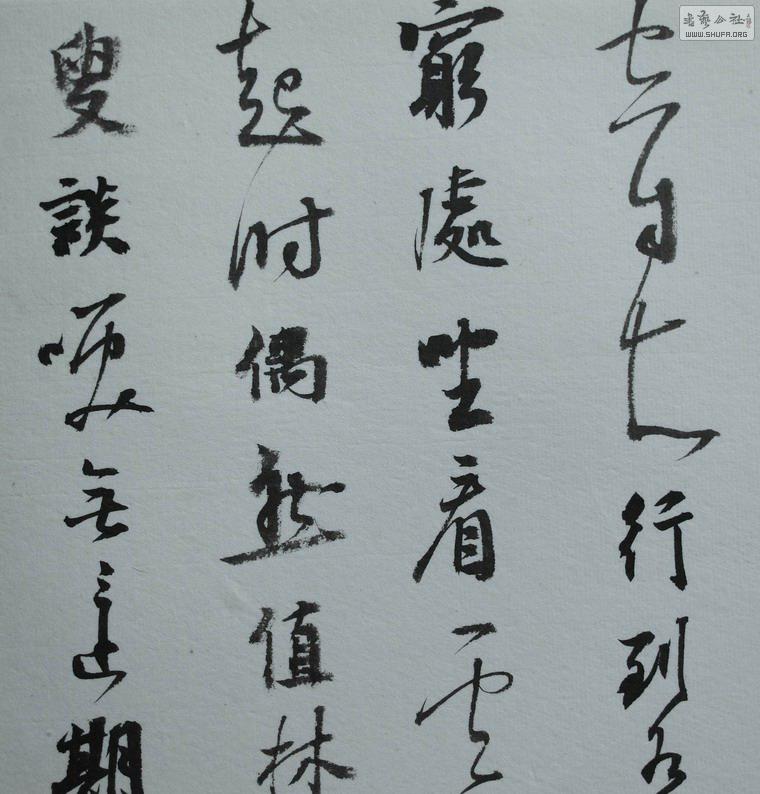 空自知行到水
窮處坐看雲
起时偶然值林
叟談咲無還期
書藝公社
WWW.SHUFA.ORG